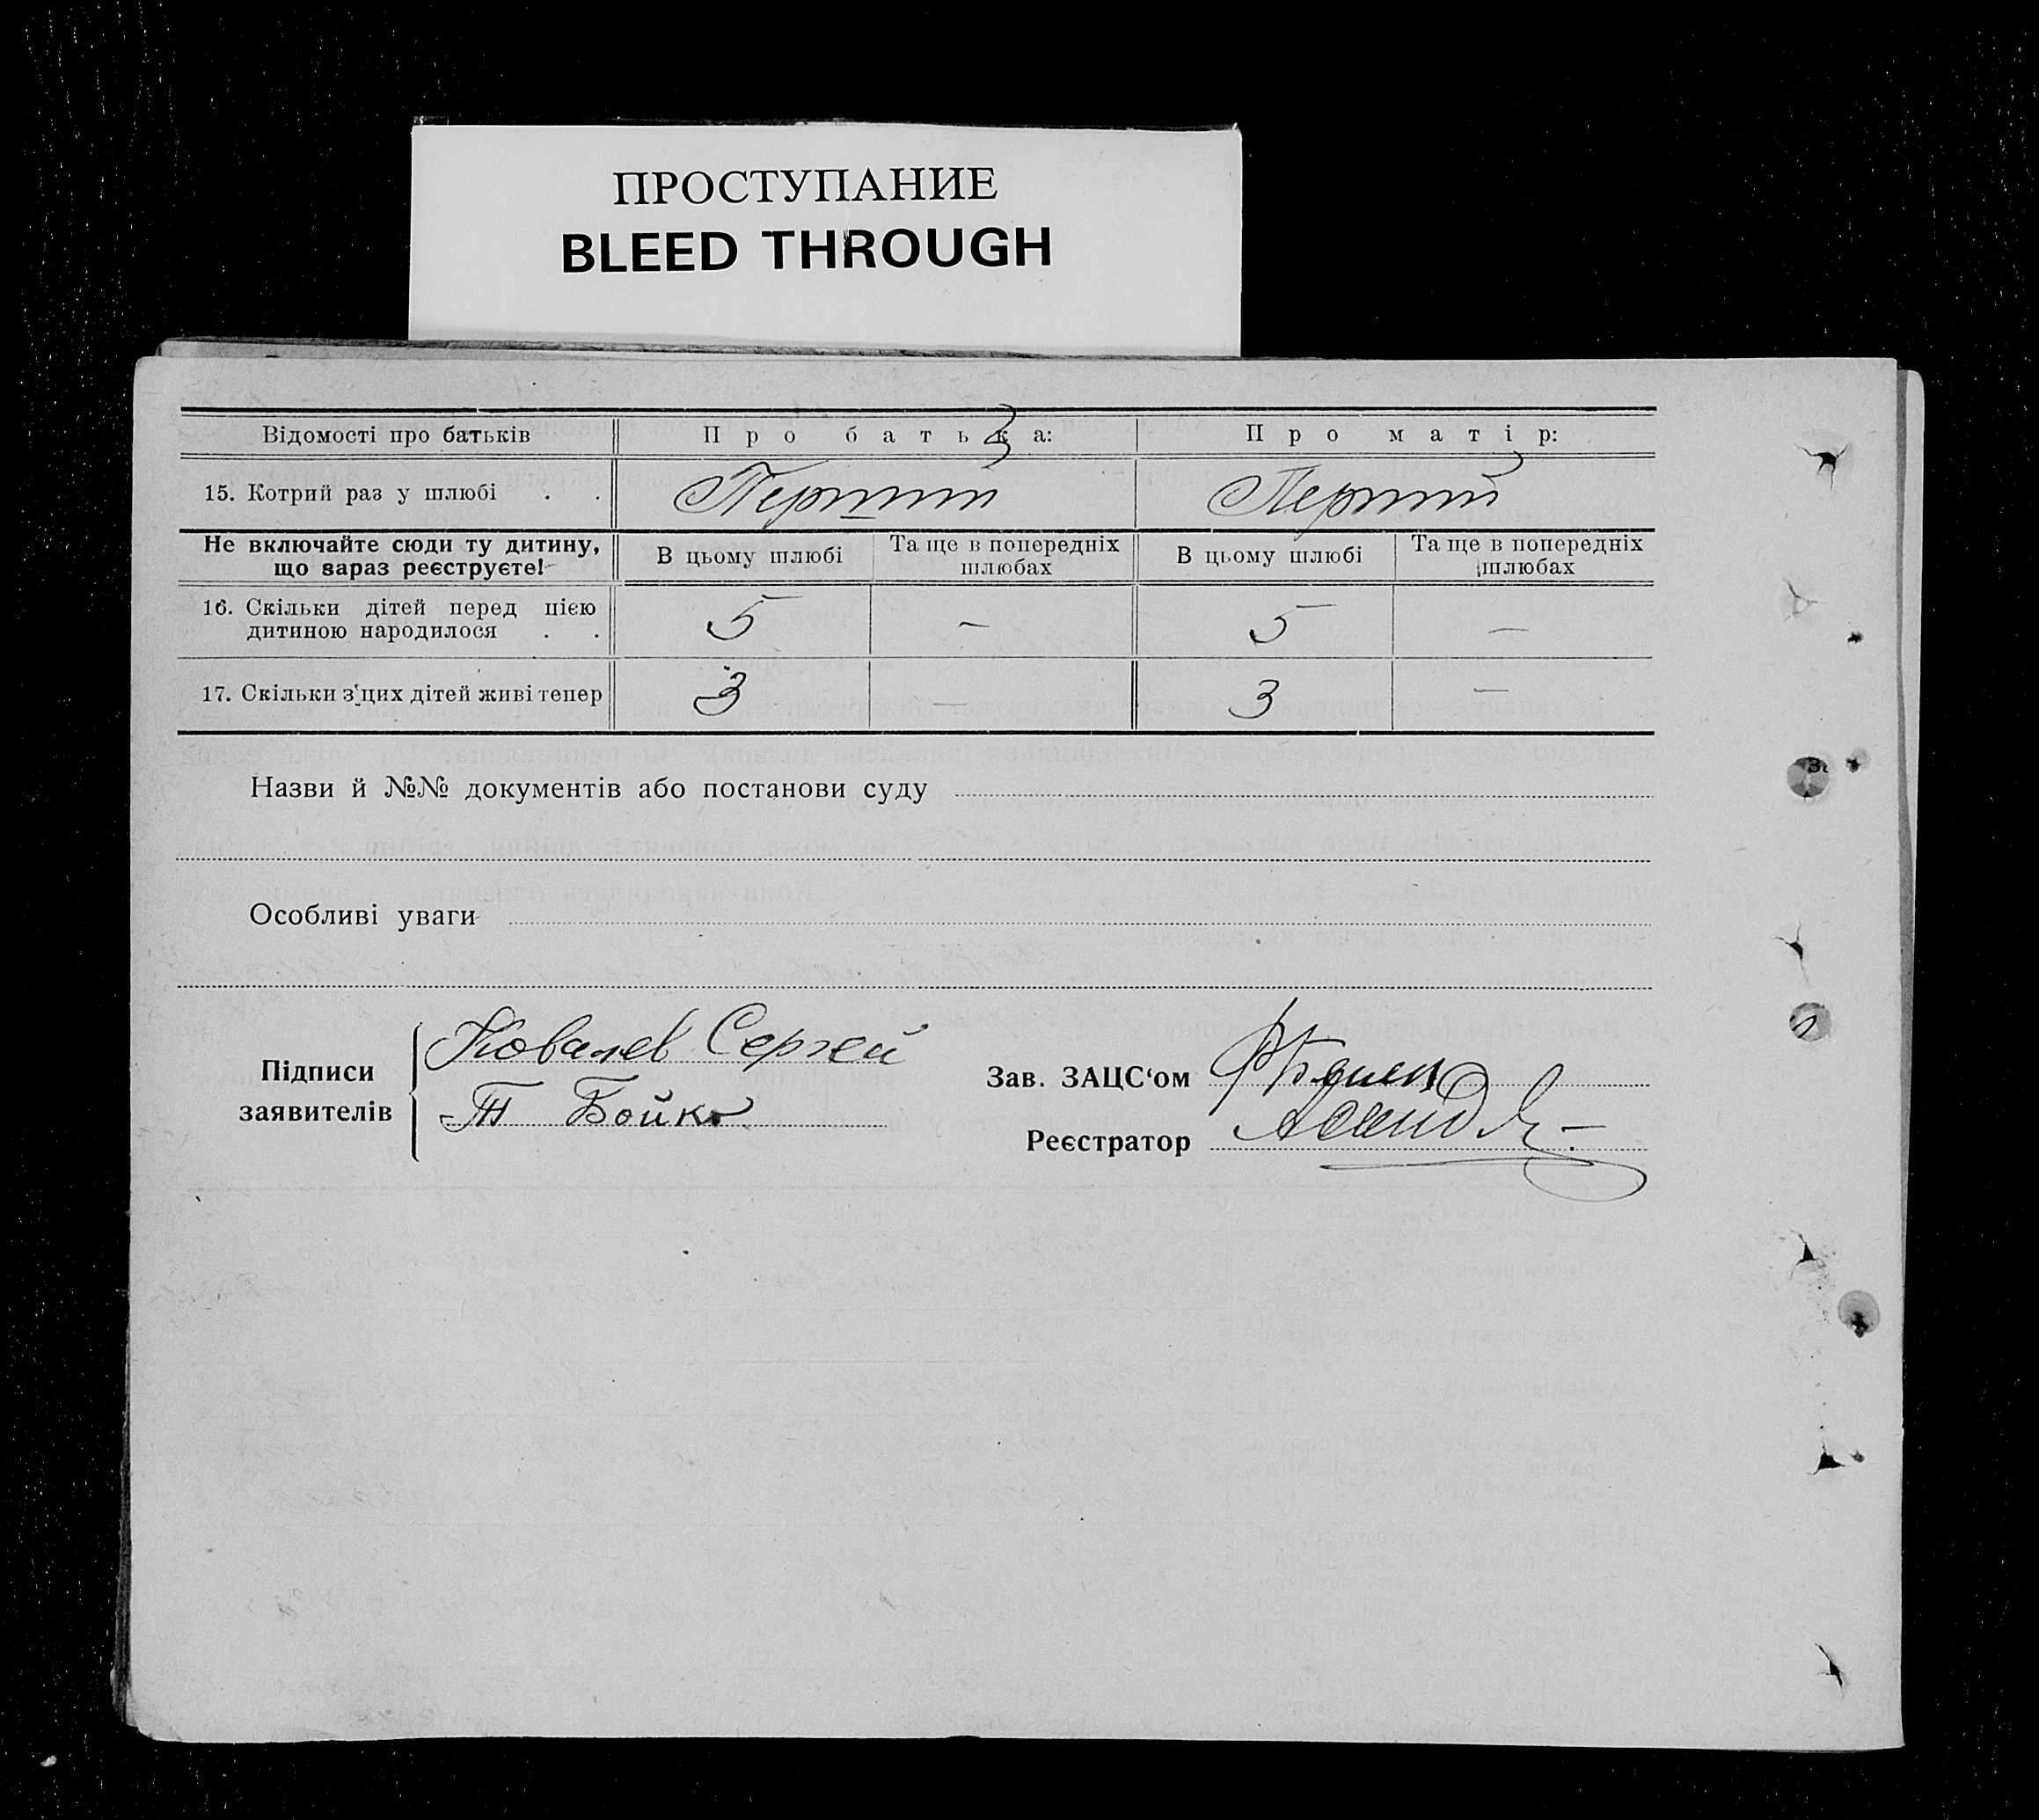 ПРОСТУПАНИЕ
BLEED THROUGH
Відомості про батьків Про батька: Про матір:
15. Котрий раз у шлюбі . . Перший Перший
Не включайте сюди ту дитину, що вараз реєструєте! В цьому шлюбі Та ще в попередніх шлюбах В цьому шлюбі Та ще в попередніх шлюбах
16. Скільки дітей перед цією дитиною народилося . . 5 — 5 —
17. Скільки з'цих дітей живі тепер 3 — 3 —
Назви й №№ документів або постанови суду
Особливі уваги
Підписи заявителів
Ковалев Сергей
Т Бойко
Зав. ЗАЦС‘ом
Реєстратор